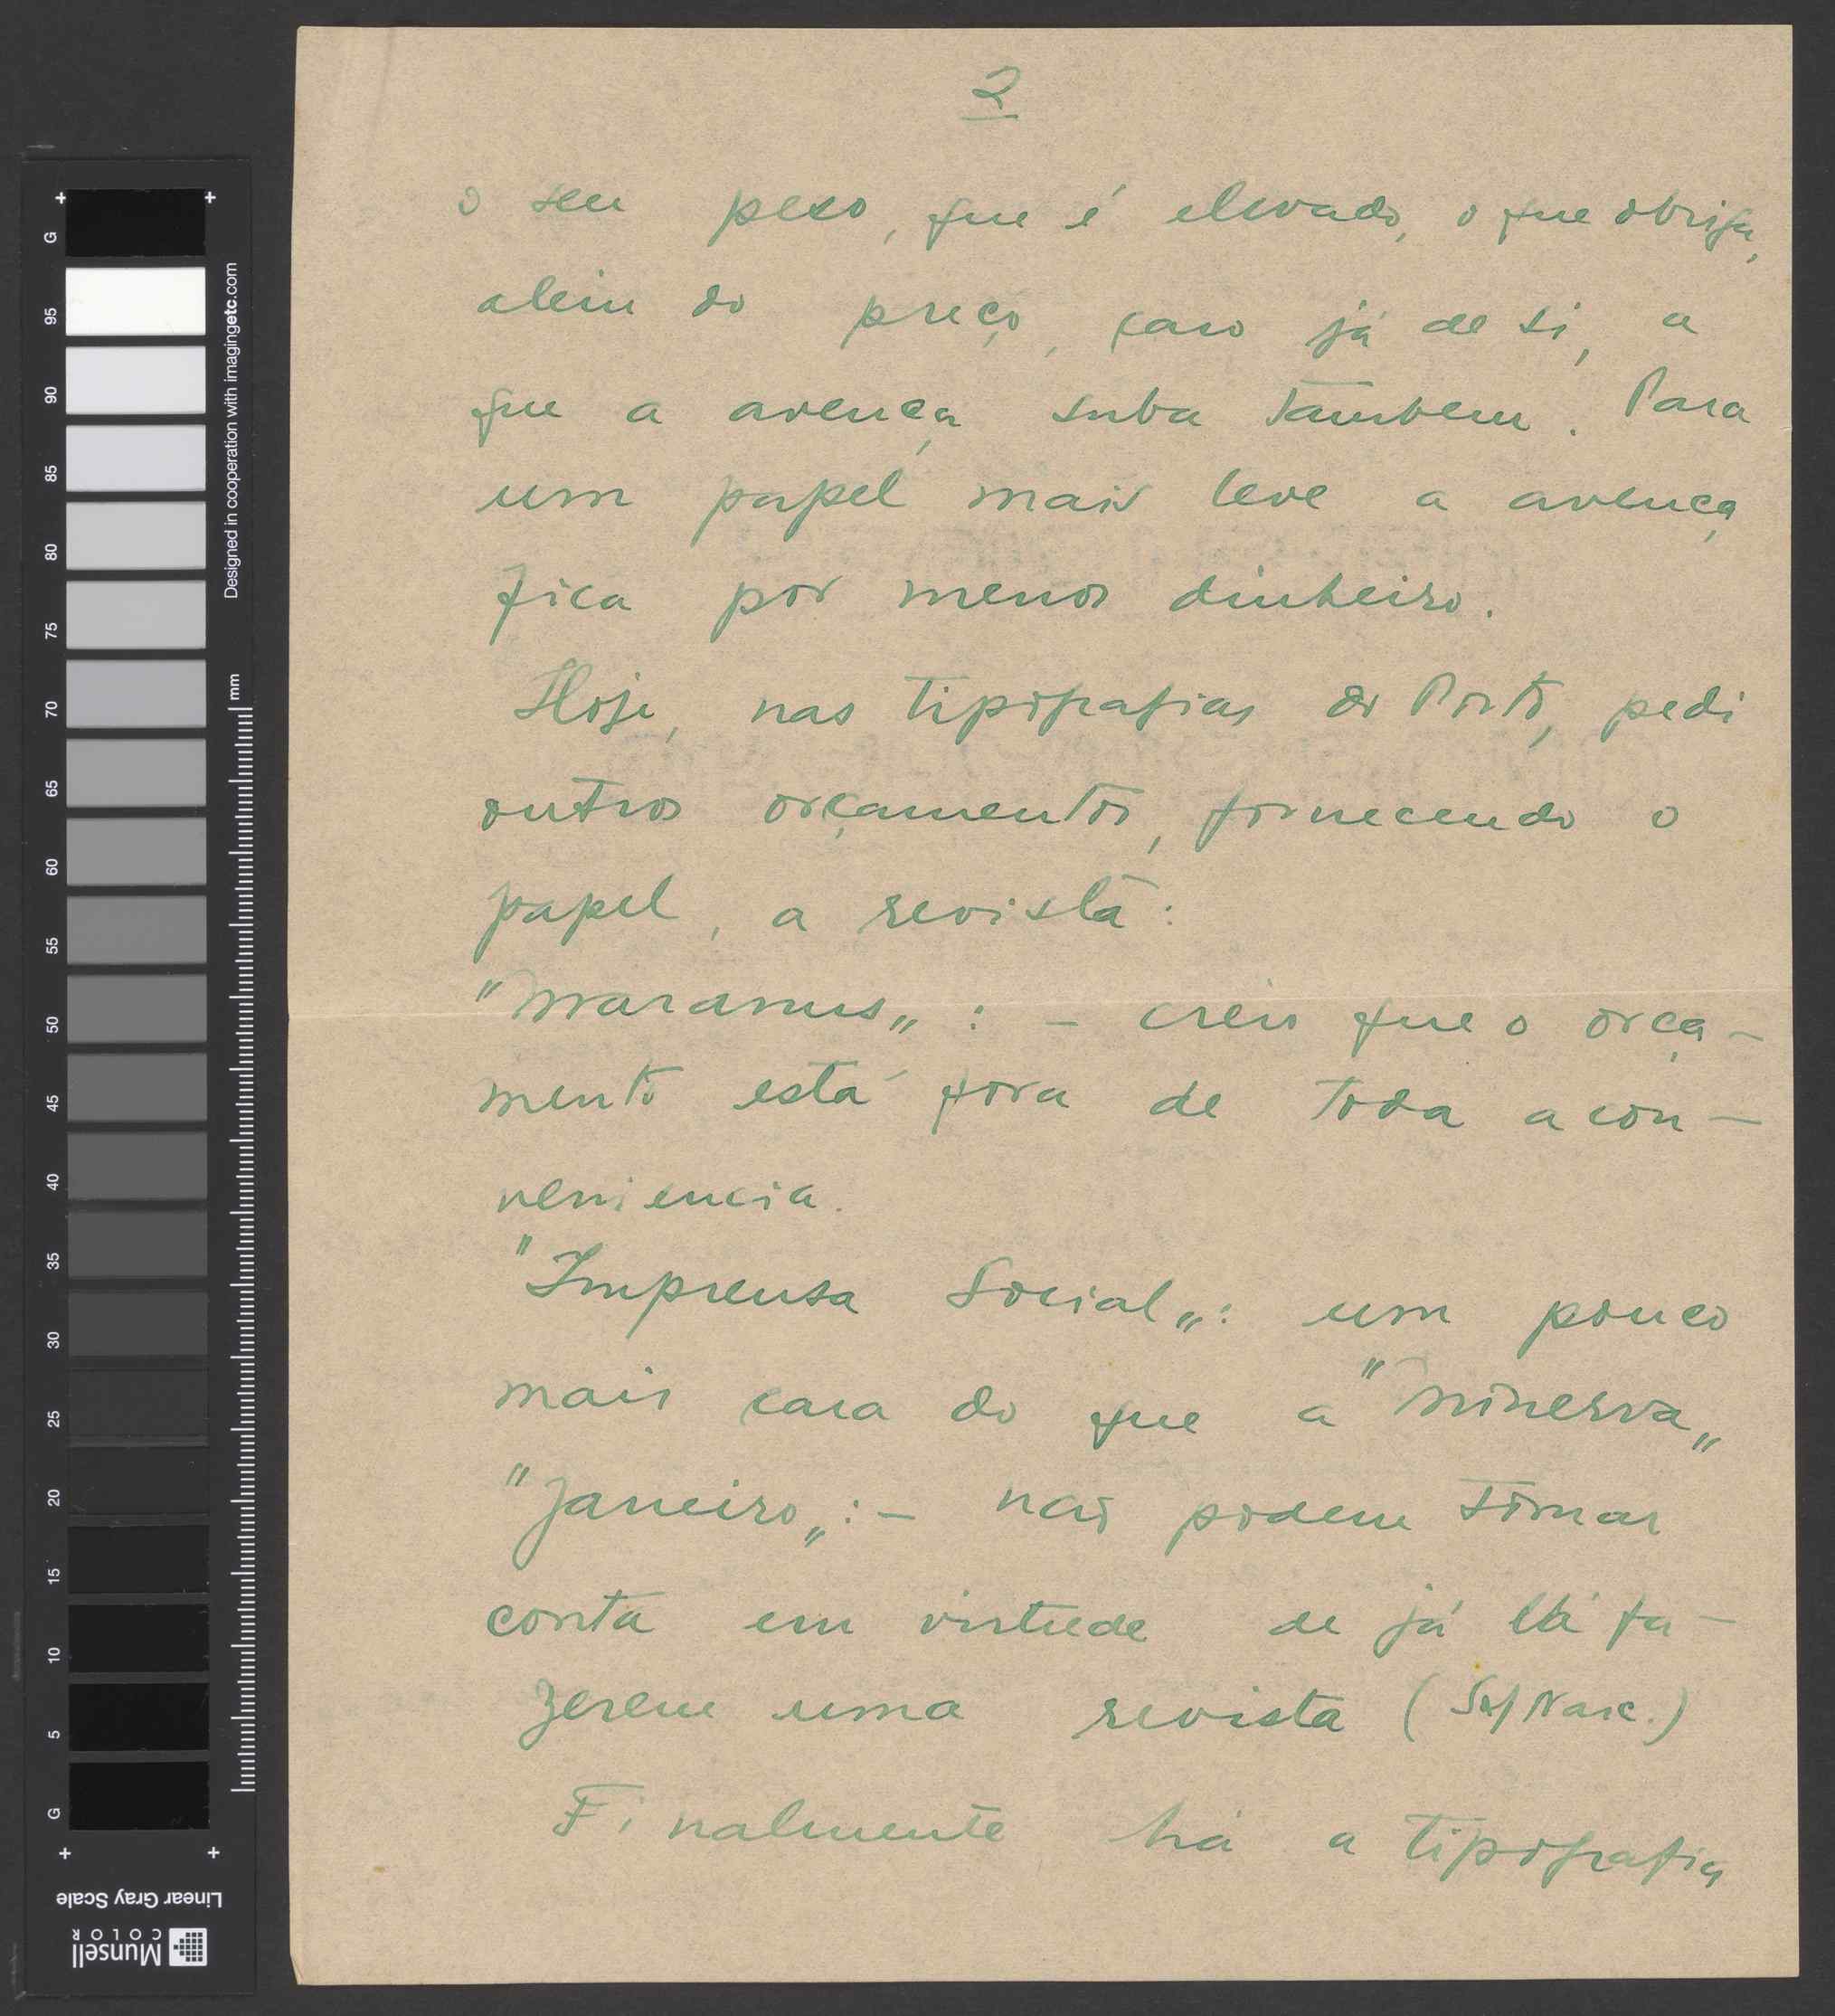 2
o seu peso, que é elevado, o que obriga,
alem do preço, caro já de si, a
que a avença suba tambem. Para
um papel mais leve a avença
fica por menos dinheiro.
Hoje, nas tipografias do Porto, pedi
outros orçamentos, fornecendo o
papel, a revista:
"Maranus„ : – creio que o orça-
mento está fora de toda a con-
veniencia.
"Imprensa Social„: um pouco
mais cara do que a "Minerva„
"Janeiro„: – não podem tomar
conta em virtude de já lá fa-
zerem uma revista (
Finalmente há a tipografia
G 95 90 85 80 75 70 65 60 55 50 45 40 35 30 25 20 15 10 5 G
Designed in cooperation with imagingetc.com
mm
Linear Gray Scale
Munsell
COLOR